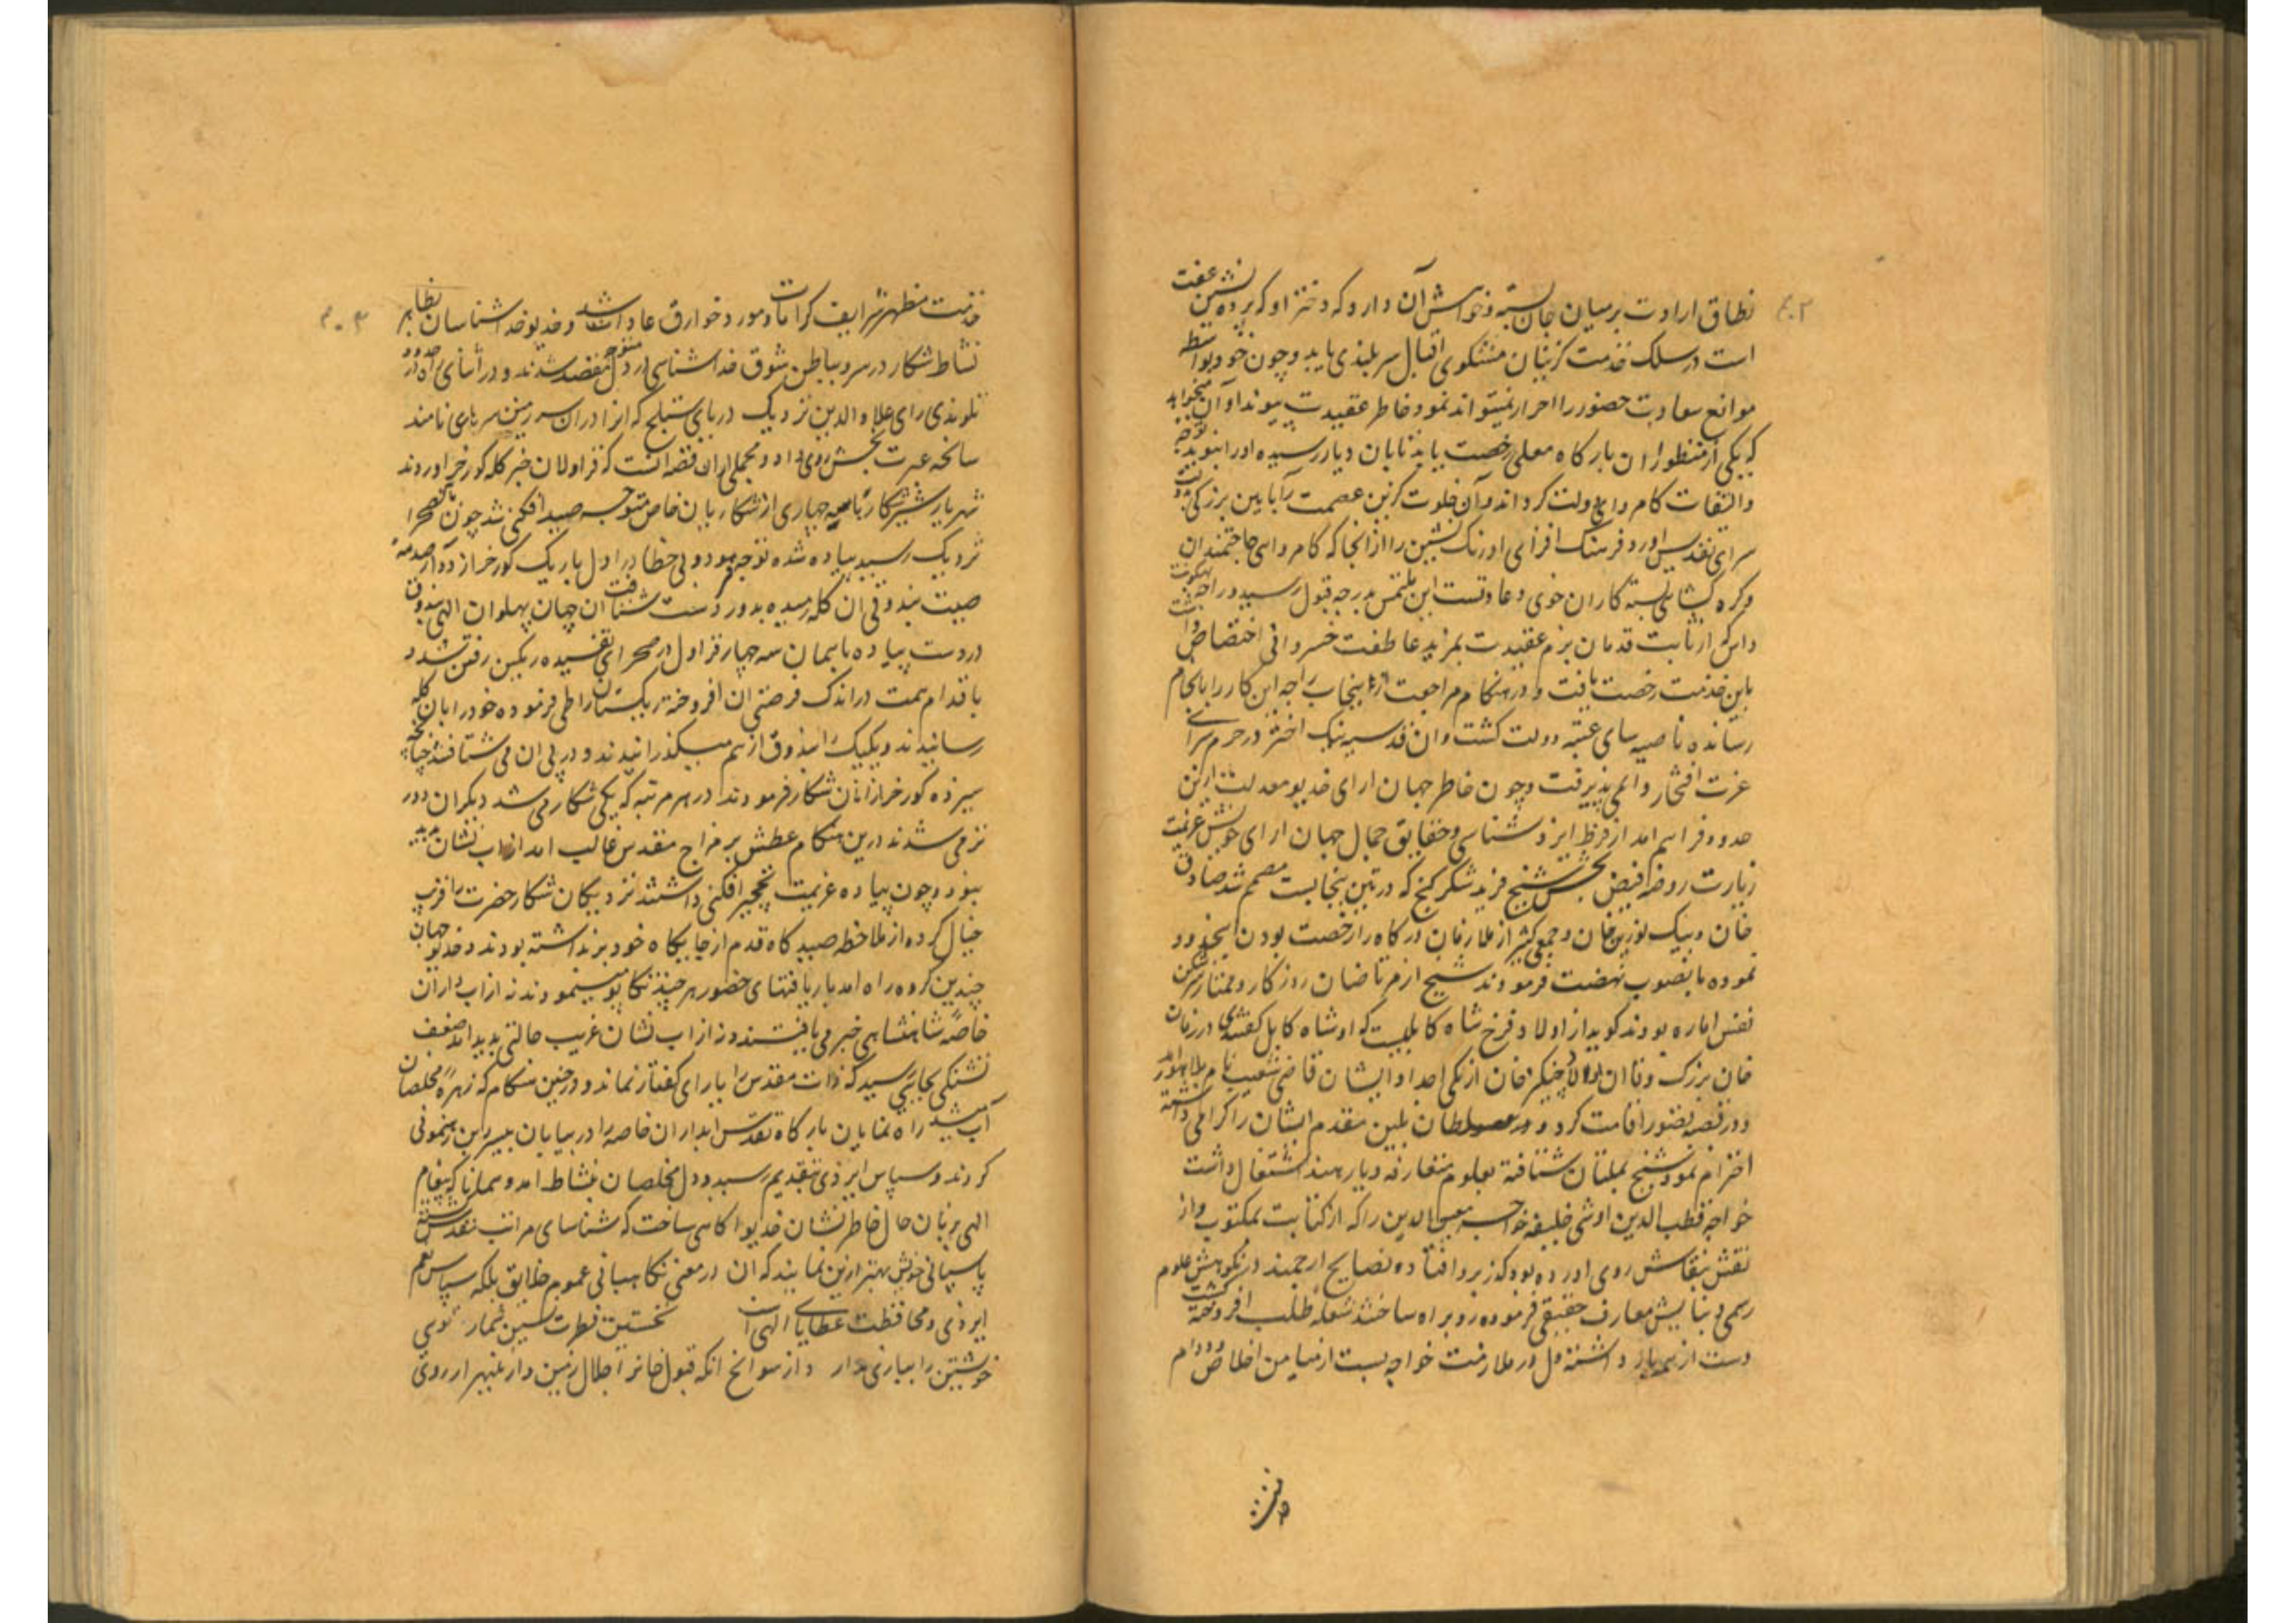 ۳۰۲
نطاق ارادت برمیان جان بسته خواهش آن دارد که دختر او که پرده نشین عفت
است در سلک خدمت گزینان مشکوی اقبال سربلندی یابد و چون خود بواسطه
موانع سعادت حضور را احراز نمیتواند نمود خاطر عقیدت پیوند او آن میخواهد
که یکی از منظوران بارگاه معلی رخصت یابد تا بان دیار رسیده او را بنوید توجه
والتفات کامروای دولت گرداند و آن خلوت گزین عصمت را بآیین بزرگی
سرای تقدس آورد فرهنگ افزای اورنک نشین را از انجا که کامروایی حاجتمندان
و گره کشایی بسته کاران خوی و عادتست این ملتمس بدرجه قبول رسید و راجه بهکونت
داس که از ثابت قدمان بزم عقیدت بمزید عاطفت خسروانی اختصاص داشت
باین خدمت رخصت یافت و در هنکام مراجعت از پنجاب راجه این کار را بانجام
رسانده ناصیه سای عتبه دولت کشت و ان قدسیه نیک اختر در حرم سرای
عزت افتخار دائمی پذیرفت و چون خاطر جهان ارای خدیو معدلت ازین
حدود فراهم امد از فرط ایزد شناسی و حقایق جمال جهان ارای خویش عزیمت
زیارت روضه فیض بخش شیخ فرید شکر کنج که در پتن پنجابست مصمم شد صادق
خان و بیک نورین خان و جمعی کثیر از ملازمان درگاه را رخصت بودن انحدود
نموده بانصوب نهضت فرمودند شیخ از مرتاضان روزکار و ممتاز شکن
نفس اماره بودند کویند از اولاد فرخ شاه کابلیست که او شاه کابل گفتندی در زمان
خان بزرک و قاآن اولاد چنکیز خان از یکی اجداد ایشان قاضی شعیب نام بلاهور امد
و در قصبه قصور اقامت کرد و سلطان بلبن مقدم ایشان را گرامی داشته
احترام نمود شیخ بملتان شتافته بعلوم متعارفه دیار هند اشتغال داشت
خواجه قطب الدین اوشی خلیفه خواجه معین الدین را که از کتابت بمکتوب و از
نقش بنقاش روی اورده بود گذر برو افتاده نصایح ارجمند در نکوهش علوم
رسمی و ستایش معارف حقیقی فرموده رو براه ساختند شعله طلب افروخته گشت
دست از همه باز داشته دل در ملازمت خواجه بست از میامن اخلاص و دوام
خدمت
۳۰۳
خدمت مظهر شرایف کرامات و مورد خوارق عادات شد و خدیو خدا شناسان بظاهر
نشاط شکار در سر و بباطن شوق خدا شناسی در دل متوجه مقصد شدند و در اثنای راه در حدود
تلوندی رای علاء الدین نزدیک دریای ستلج که انرا دران سرزمین سر هاری نامند
سانحه عبرت بخش روی داد و مجملی از ان قضه انست که قراولان خبر کله کورخر اوردند
شهریار شیرشکار با سه چهاری از شکاریان خاص متوجه صید افکنی شد چون بان صحرا
نزدیک رسید پیاده شده توجه نمود و بی خطا در اول بار یک کورخر از پا درآمد
صیت بندوق ان کله رمیده بدور دست شتافت ان جهان پهلوان الهی بندوق
در دست پیاده با همان سه چهار قراول در صحرای تفسیده ریکین رفتن شد و
باقدام همت در اندک فرصتی ان افروخته ریکستان را طی فرموده خود را بان کله
رسانیدند و یکیک را بندوق از هم میکذرانیدند و در پی ان می شتافتند چنانچه
سیزده کورخر از انان شکار فرمودند در هر مرتبه که یکی شکار می شد دیکران دور
تر می شدند درین هنکام عطش بر مزاج مقدس غالب امد از اب نشان پدید
نبود و چون پیاده عزیمت نخچیر افکنی داشتند نزدیکان شکار حضرت را قریب
خیال کرده از ملاحظه صیدگاه قدم از جایکاه خود برنداشته بودند و خدیو جهان
چندین کروه راه امد باریافتهای حضور هر چند تکاپو مینمودند نه از اب داران
خاصه شاهنشاهی خبر می یافتند و نه از اب نشان غریب حالتی پدید امد ضعف
تشنکی بجایی رسید که ذات مقدس را یارای کفتار نماند و در چنین هنکام که زهره مخلصان
آب میشد راه نمایان بارگاه تقدس ابداران خاصه را در بیابان بیسر و بن رهنمونی
کردند و سپاس ایزدی بتقدیم رسید و دل مخلصان بنشاط امد و همانا که پیغام
الهی بزبان حال خاطرنشان خدیو اکاهی ساخت که شناسای مراتب تقدس شسته
پاسبانی خویش بهتر ازین نمایند که ان در معنی نکاهبانی عموم خلایق بلکه سپاس نعم
ایزدی و محافظت عطایای الهی است نخستین فطرت پسین شمار توی
خویشتن را ببازی مدار و از سوانح انکه قبول خاطر اجلال زمین دار بنهیر از روی